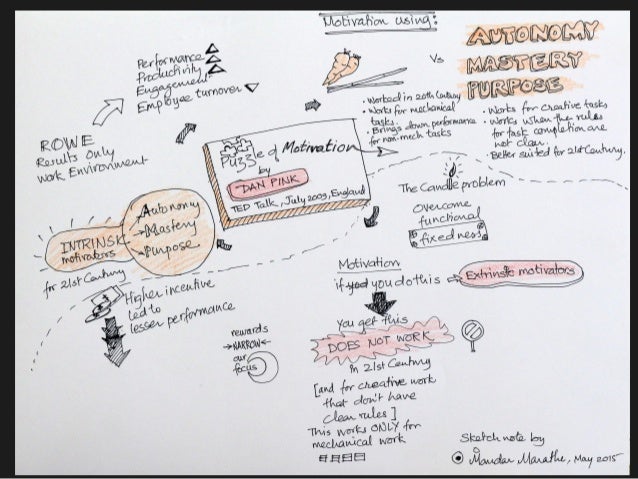 Motivation using:
Vs
AUTONOMY
MASTERY
PURPOSE
• Worked in 20th Century
• Works for mechanical
tasks.
• Brings down performance
for non-mech tasks
• Works for creative tasks
• Works when the rules
for task completion are
not clear.
• Better suited for 21st Century.
Performance
Productivity
Engagement
Employee turnover
ROWE
Results Only
Work Environment
Puzzle of Motivation
by
DAN PINK
TED Talk, July 2009, England
The Candle problem
overcome
functional
fixedness
Autonomy
Mastery
Purpose
INTRINSIC
motivators
for 21st Century
Higher incentive
led to
lesser performance
rewards
NARROW
our
focus
Motivation
if you do this
Extrinsic motivators
You get this
DOES NOT WORK
in 21st Century
[and for creative work
that don't have
clear rules]
This works ONLY for
mechanical work
Sketchnote by
Mandar Marathe, May 2015